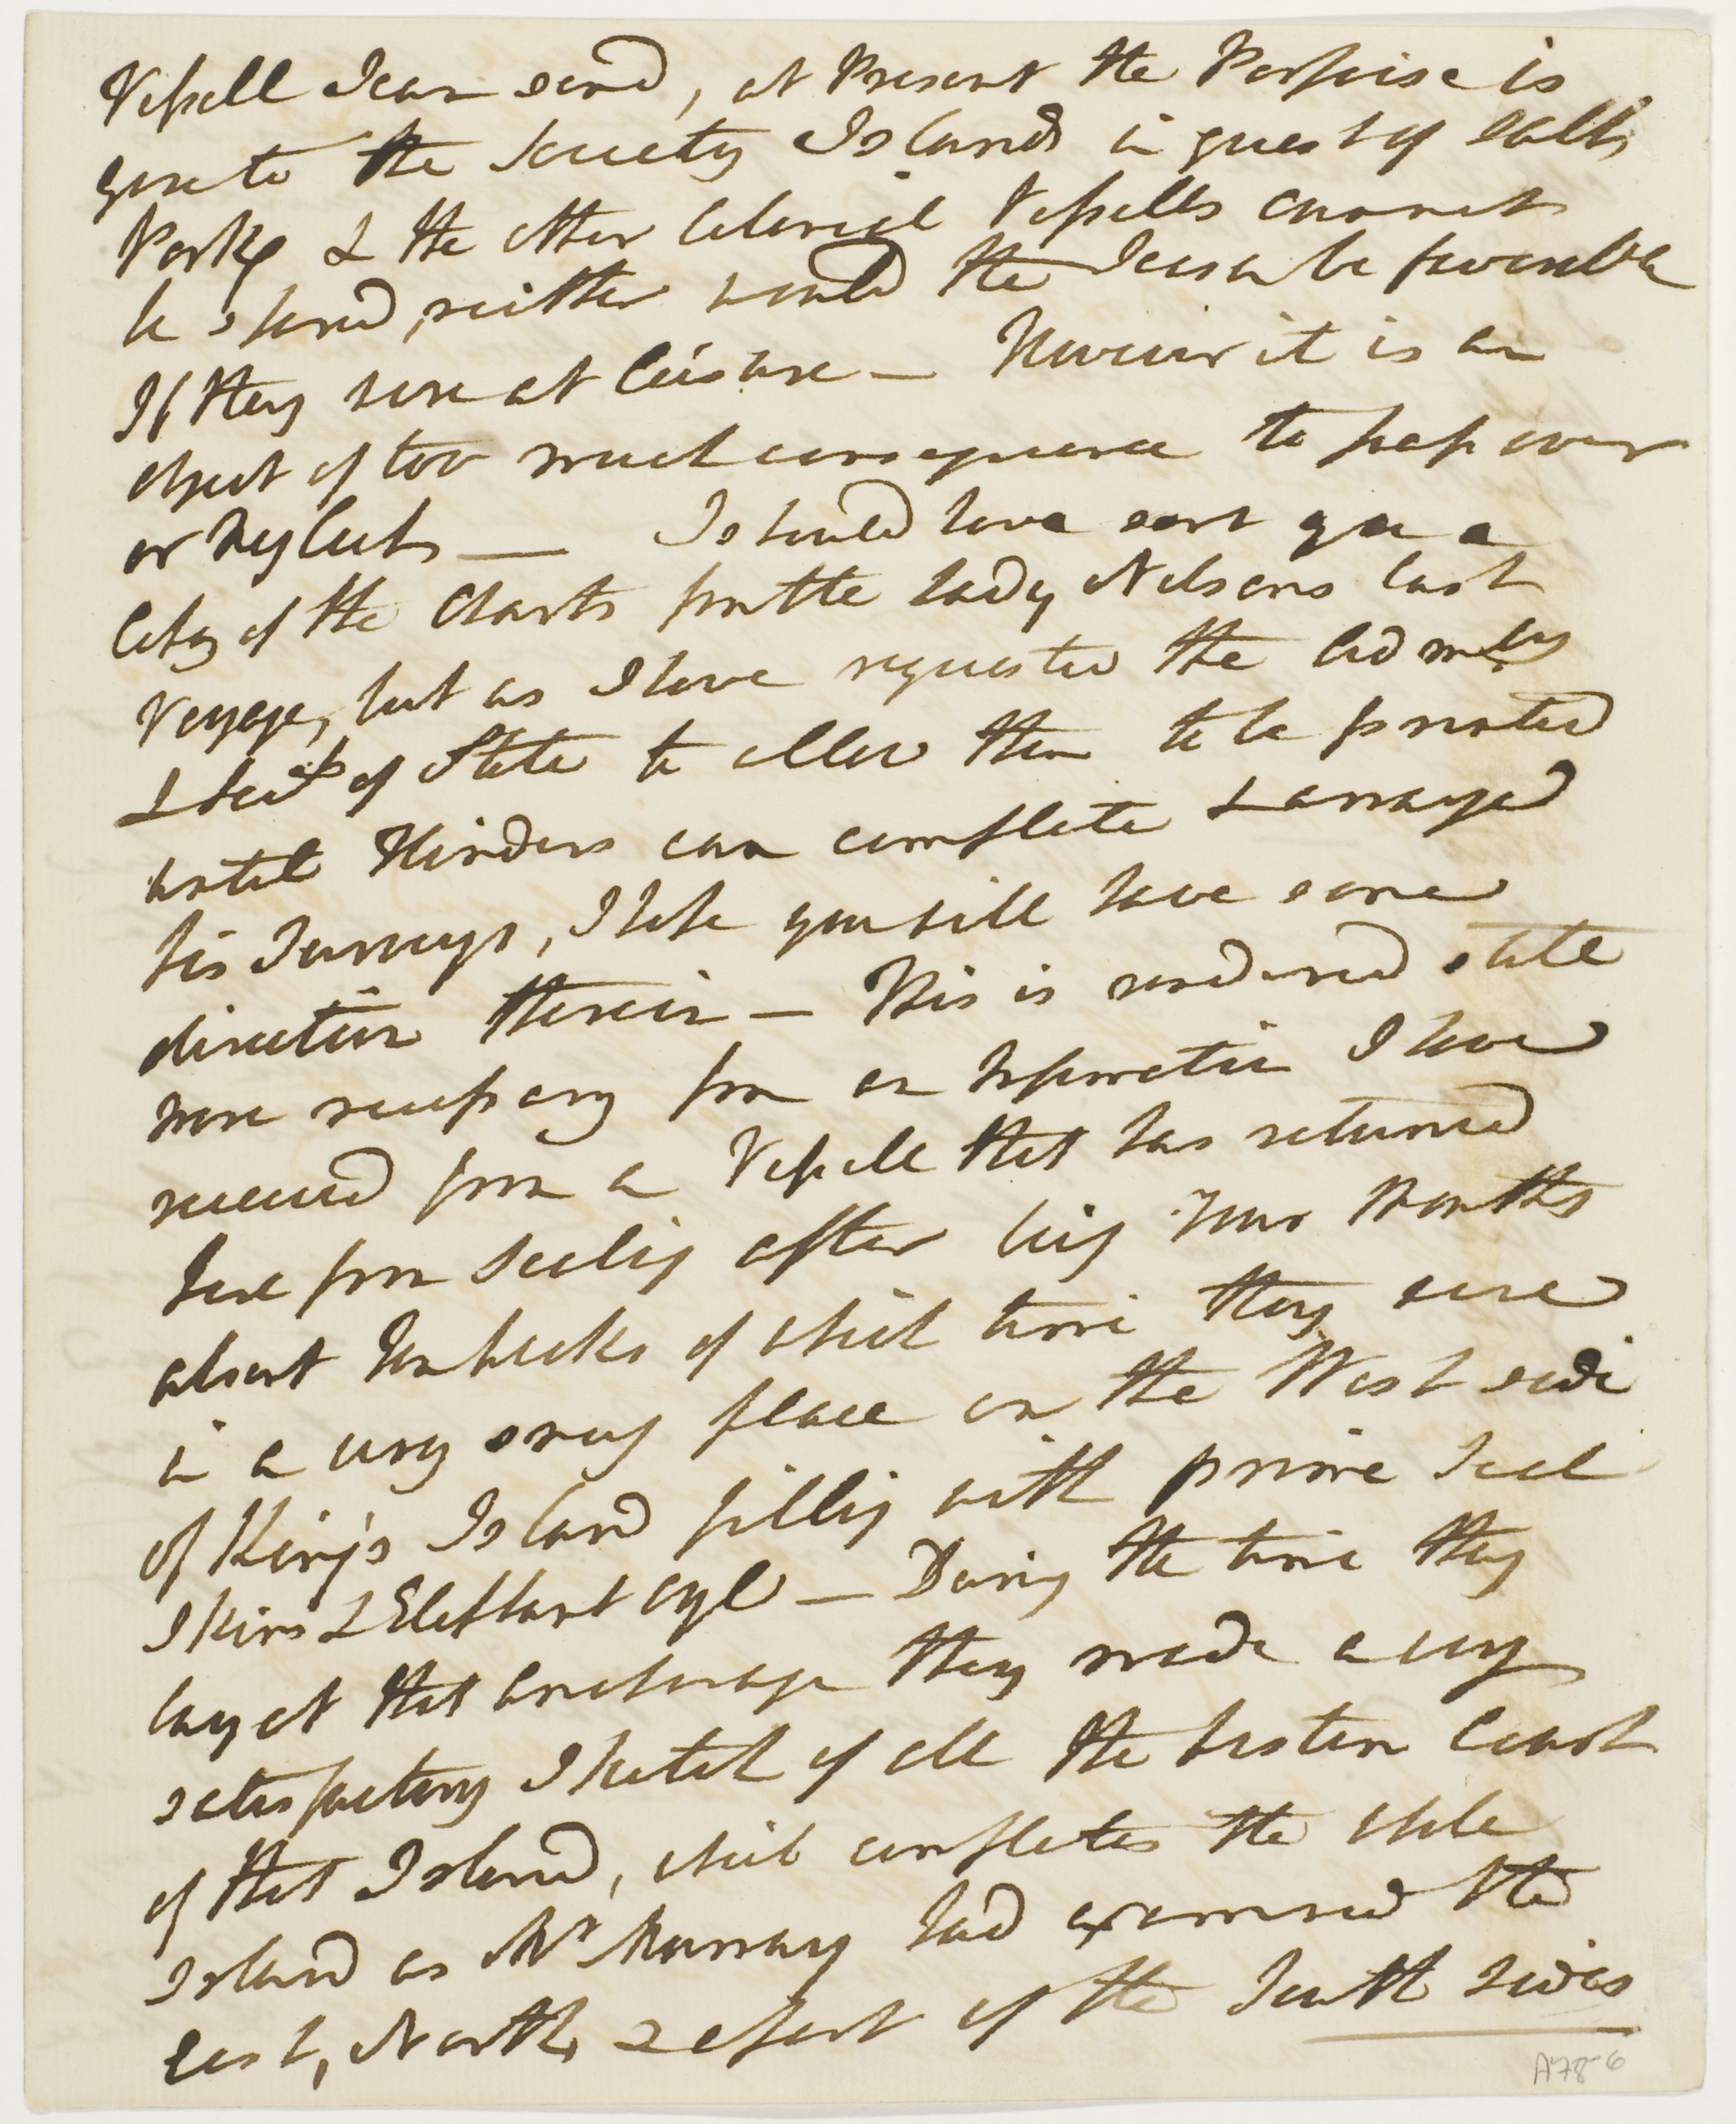 Vessell I can send, at Present the Porpoise is
gone to the Society Islands in quest of Salt
Pork, & the other Colonial Vessells cannot
be spared, neither would the Season be favourable
If they were at leisure — However it is an
object of too much consequence to pass over
or Neglect, — I should have sent you a
Copy of the Charts from the Lady Nelsons last
Voyage, but as I have requested the Adm.lty
& Sec.ys of State to allow them to be printed
until Flinders can complete & arrange
his Surveys, I hope you will have some
direction therein — This is rendered still
more necessary from an Information I have
received from a Vessell that has returned
here from Sealing after being four Months
absent Ten weeks of which time they were
in a very snug place on the West side
of King's Island filling with prime Seal
Skins & Elephant Oyl — During the time they
lay at that anchorage they made a very
satisfactory Sketch of all the Western Coast
of that Island, which completes the whole
Island as Mr Murray had examined the
East, North, & a part of the South sides
A78-6